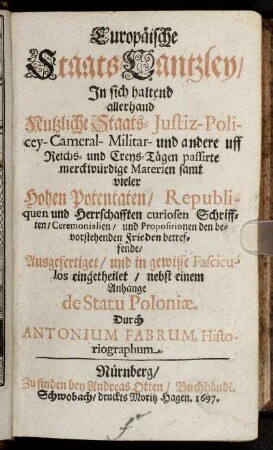 Europäische
Staats Cantzley/
In sich haltend
allerhand
Nutzliche Staats-Justiz-Poli-
cey-Cameral-Militar- und andere uff
Reichs- und Creys-Tägen passirte
merckwürdige Materien samt
vieler
Hohen Potentaten/ Republi-
quen und Herrschafften curiosen Schriff-
ten/ Ceremonialien/ und Propositionen den be-
vorstehenden Frieden betref-
fende/
Ausgefertiget/ und in gewisse Fascicu-
los eingetheilet/ nebst einem
Anhange
de Statu Poloniæ.
Durch
ANTONIUM FABRUM, Histo-
riographum.
Nürnberg/
Zu finden bey Andreas Otten/ Buchhändl.
Schwobach/ druckts Moritz Hagen. 1697.